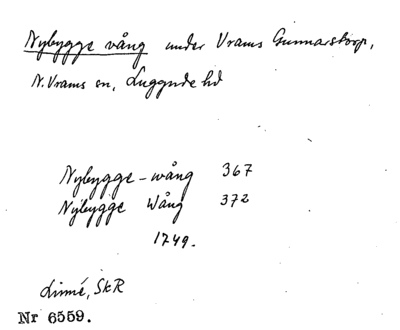 Nybygge vång under Vrams Gunnarstorp,
N. Vrams sn, Luggude hd
Nybygge-wång 367
Nÿbygge Wång 372
1749.
Linné, SkR
Nr 6559.